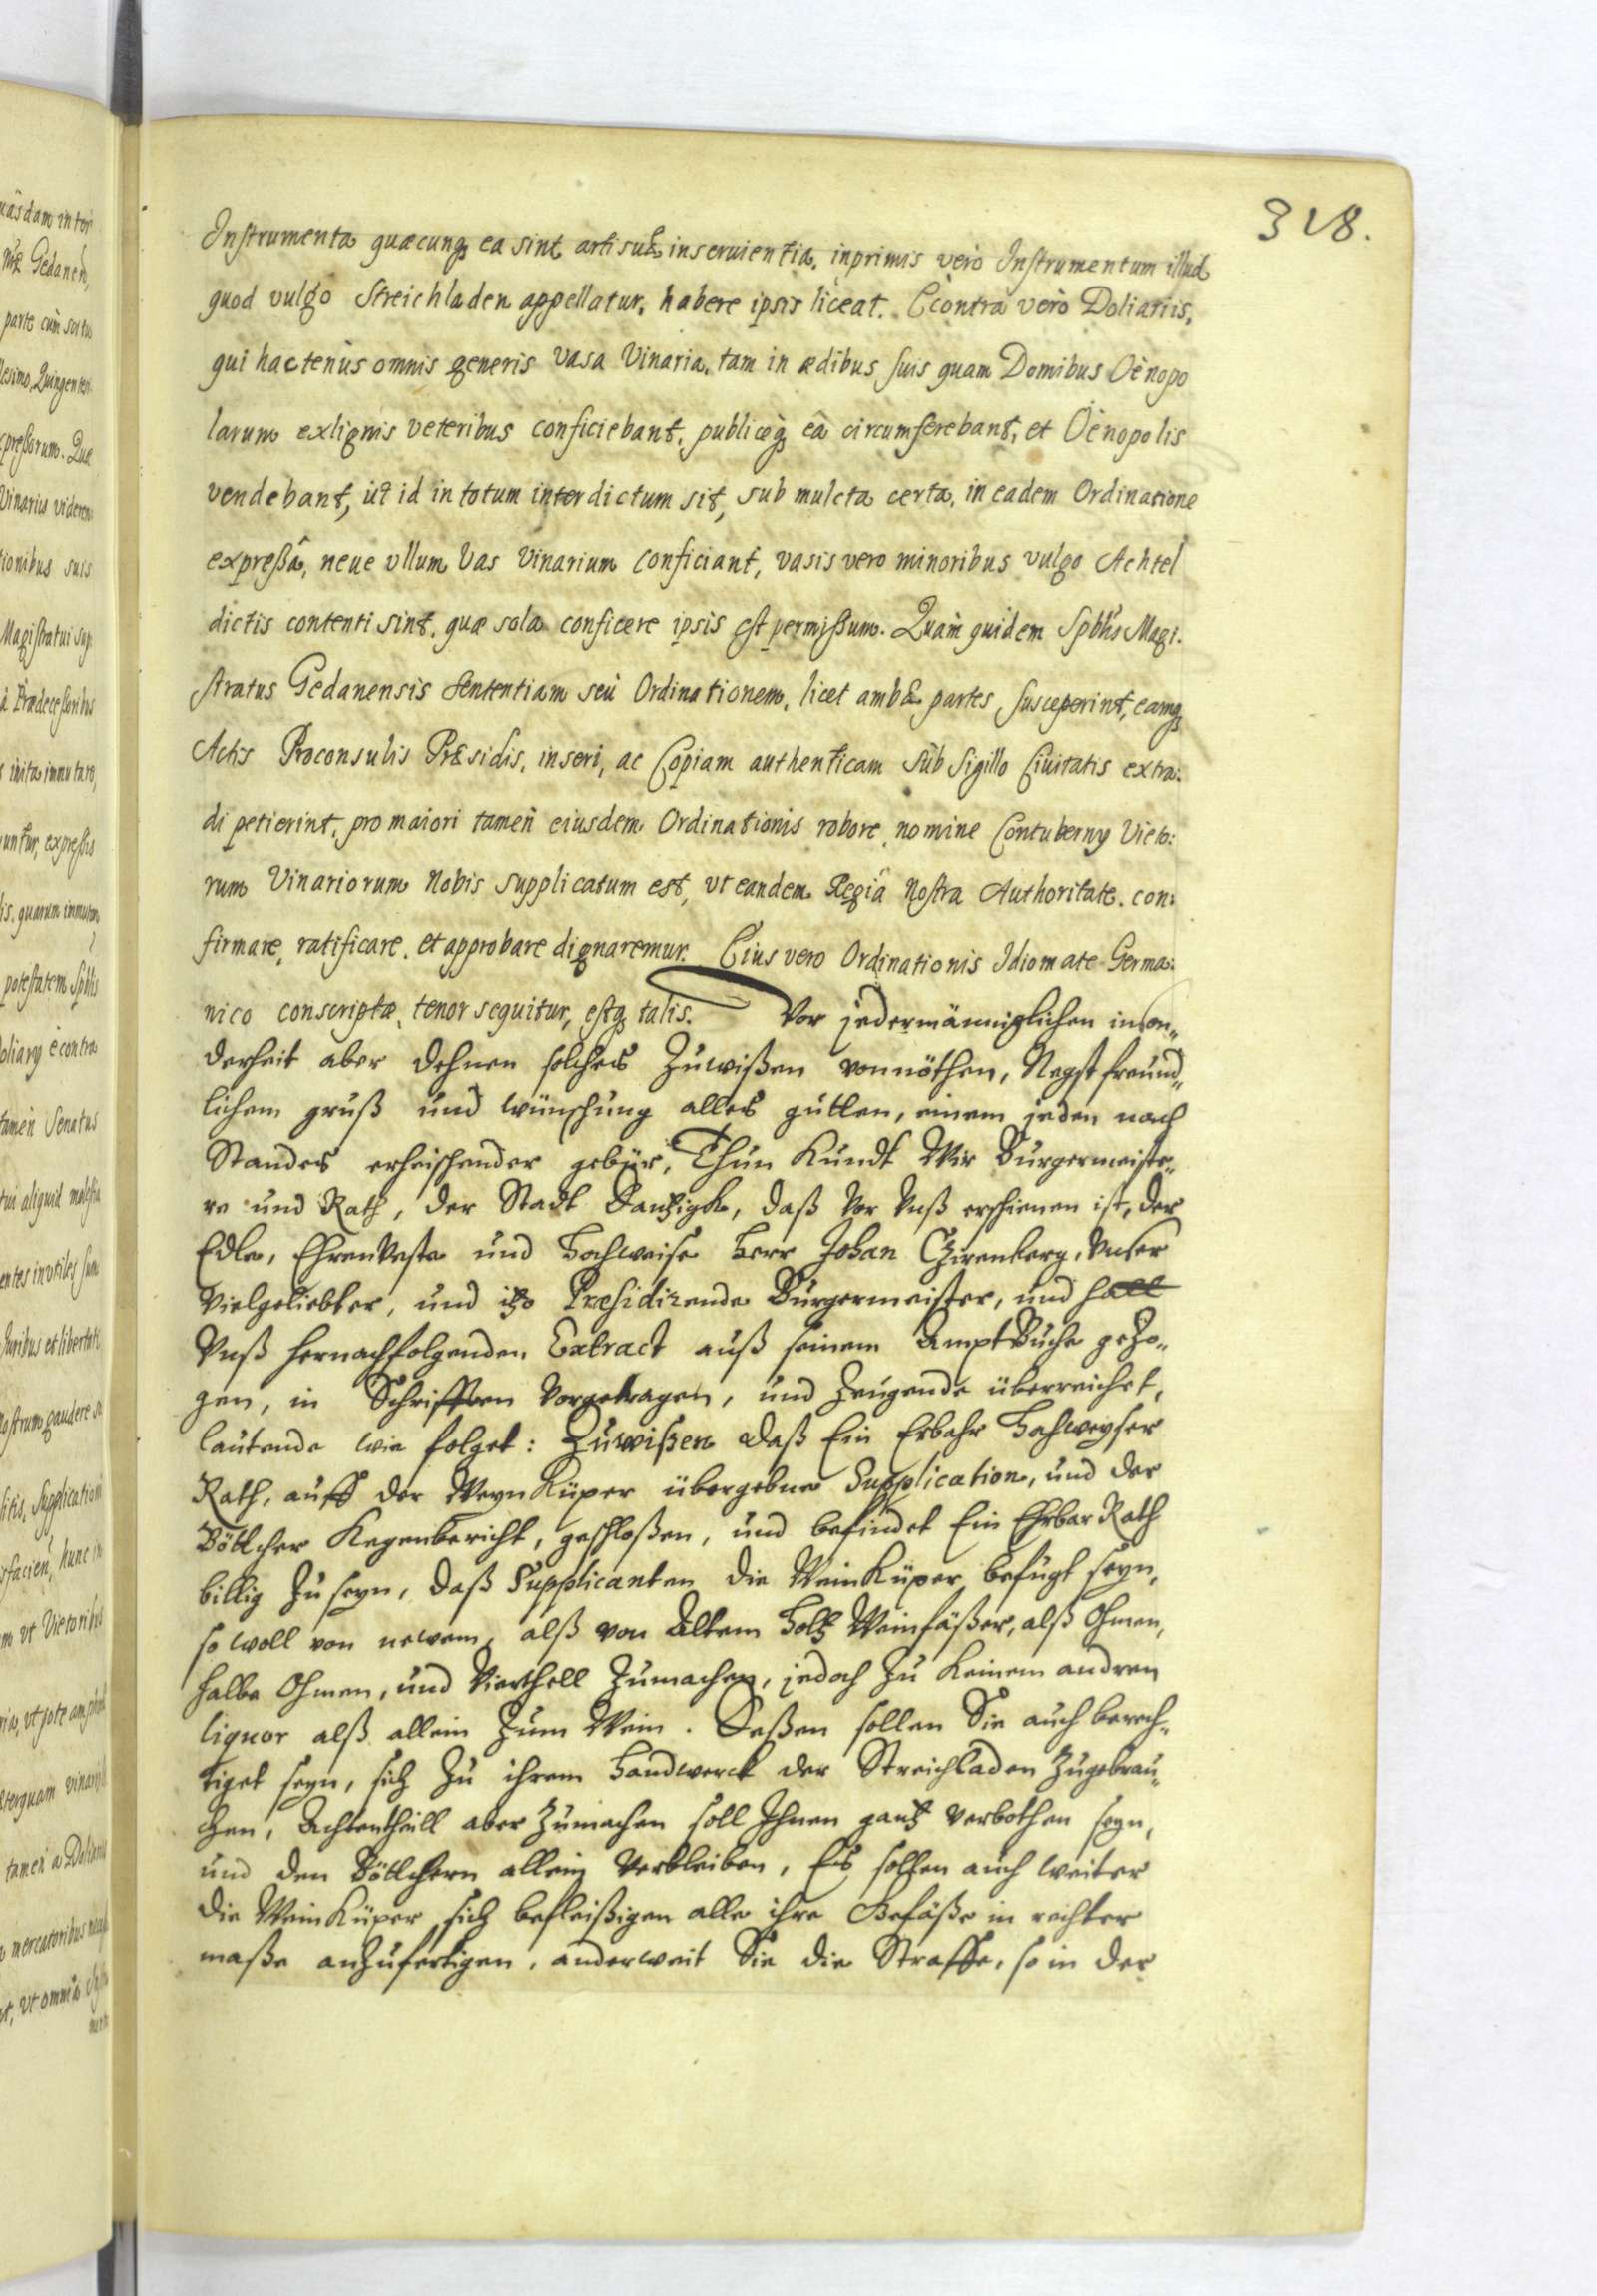 318.
Instrumenta quæcunq₃ ea sint arti suæ inseruientia, inprimis verò Instrumentum illud
quod vulgo Streichladen appellatur, habere ipsis liceat. Econtra verò Doliariis,
qui hactenùs omnis generis Vasa Vinaria, tam in ædibus suis quam Domibus Oënopo
larum ex lignis veteribus conficiebant, publicéq₃ eà circumferebant, et Oënopolis
vendebant, út id in totum interdictum sit, sub mulcta certa, in eadem Ordinatione
expreßâ, neue vllum Vas Vinarium conficiant, vasis vero minoribus vulgo Achtel
dictis contenti sint, quæ sola conficere ipsis est permißum. Quàm quidem Spblis Magi:
stratus Gedanensis Sententiam seù Ordinationem, licet ambæ partes susceperint, eamq₃
Actis Proconsulis Præsidis, inseri, ac Copiam authenticam sub Sigillo Ciuitatis extra:
di petierint, pro maiori tamen eiusdem Ordinationis robore, nomine Contubernij Vieto:
rum Vinariorum Nobis supplicatum est, vt eandem Regiâ Nostra Authoritate con:
firmare, ratificare, et approbare dignaremur. Eius vero Ordinationis Idiomate Germa:
nico conscriptæ, tenor sequitur, estq₃ talis. Vor jedermänniglichen inson„
derheit aber dehnen solches Zuwißen vonnöthen, Negst freund„
lichem gruß und wünschung alles gutten, einem jeden nach
Standes erheischender gebür, Thun Kundt Wir Burgermeiste„
re und Rath, der Stadt Dantzigk, daß Vor Vnß erschienen ist, der
Edle, EhrenVeste und Hochweise Herr Johan Czirenberg, Vnser
Vielgeliebter, und itzo Præsidirende Burgermeister, und hatt
Vnß hernachfolgenden Extract auß seinem AmptBuche gezo„
gen, in Schrifften Vorgetragen, und Zeugende überreichet,
lautende wie folget: Zuwißen daß Ein Erbahr Hochweyser
Rath, auff der WeynKüper übergebne Supplication, und der
Böttcher Kegenbericht, geschloßen, und befindet Ein Ehrbar Rath
billig Zu seyn, daß Supplicanten die WeinKüper befugt seyn,
so woll von newem, alß von Altem Holtz Weinfäßer, alß Ohmen,
halbe Ohmen, und Vierthell Zumachen, jedoch Zu Keinem andren
liquor alß allein Zum Wein. Deßen sollen Sie auch berech„
tiget seyn, sich Zu ihrem Handwerck der Streichladen Zugebrau„
chen, Achtentheill aber Zumachen soll Ihnen gantz Verbothen seyn,
und den Böttchern allein Verbleiben, Es sollen auch weiter
die WeinKüper sich befleißigen alle ihre Gefäße in rechter
maße anZufertigen, anderweit Sie die Straffe, so in der